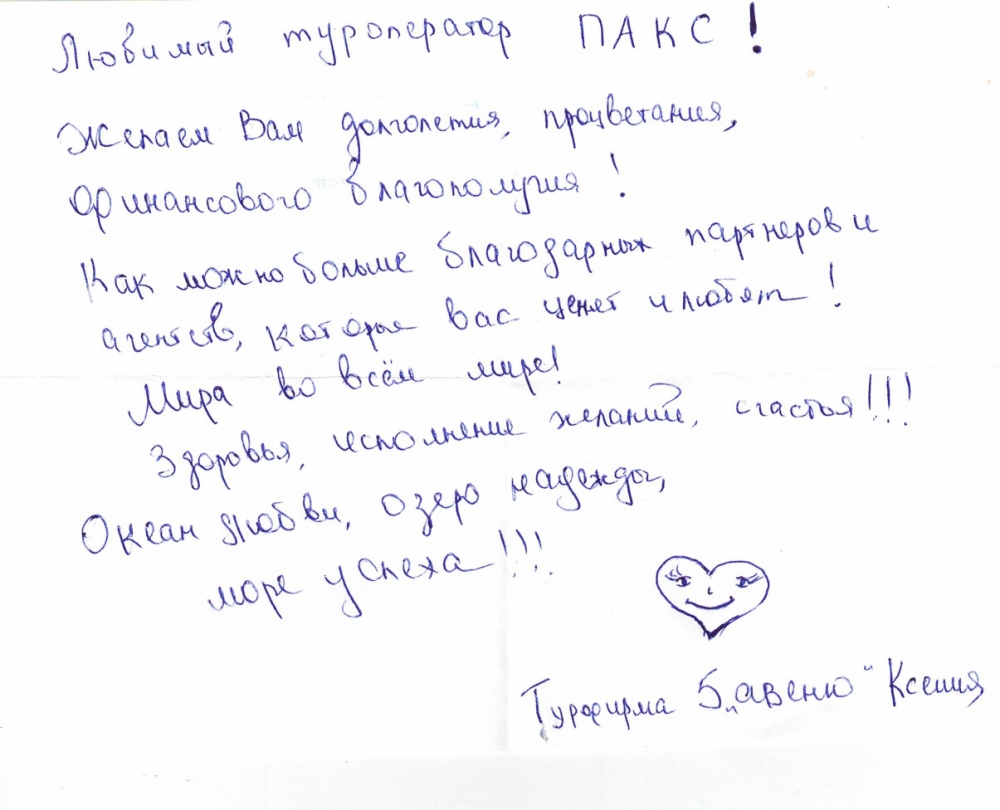 Любимый туроператор ПАКС!
Желаем Вам долголетия, процветания,
финансового благополучия!
Как можно больше благодарных партнеров и
агентств, которые вас ценят и любят!
Мира во всём мире!
Здоровья, исполнение желаний, счастья!!!
Океан любви, озеро надежды,
море успеха!!!
Турфирма 5„авеню“ Ксения